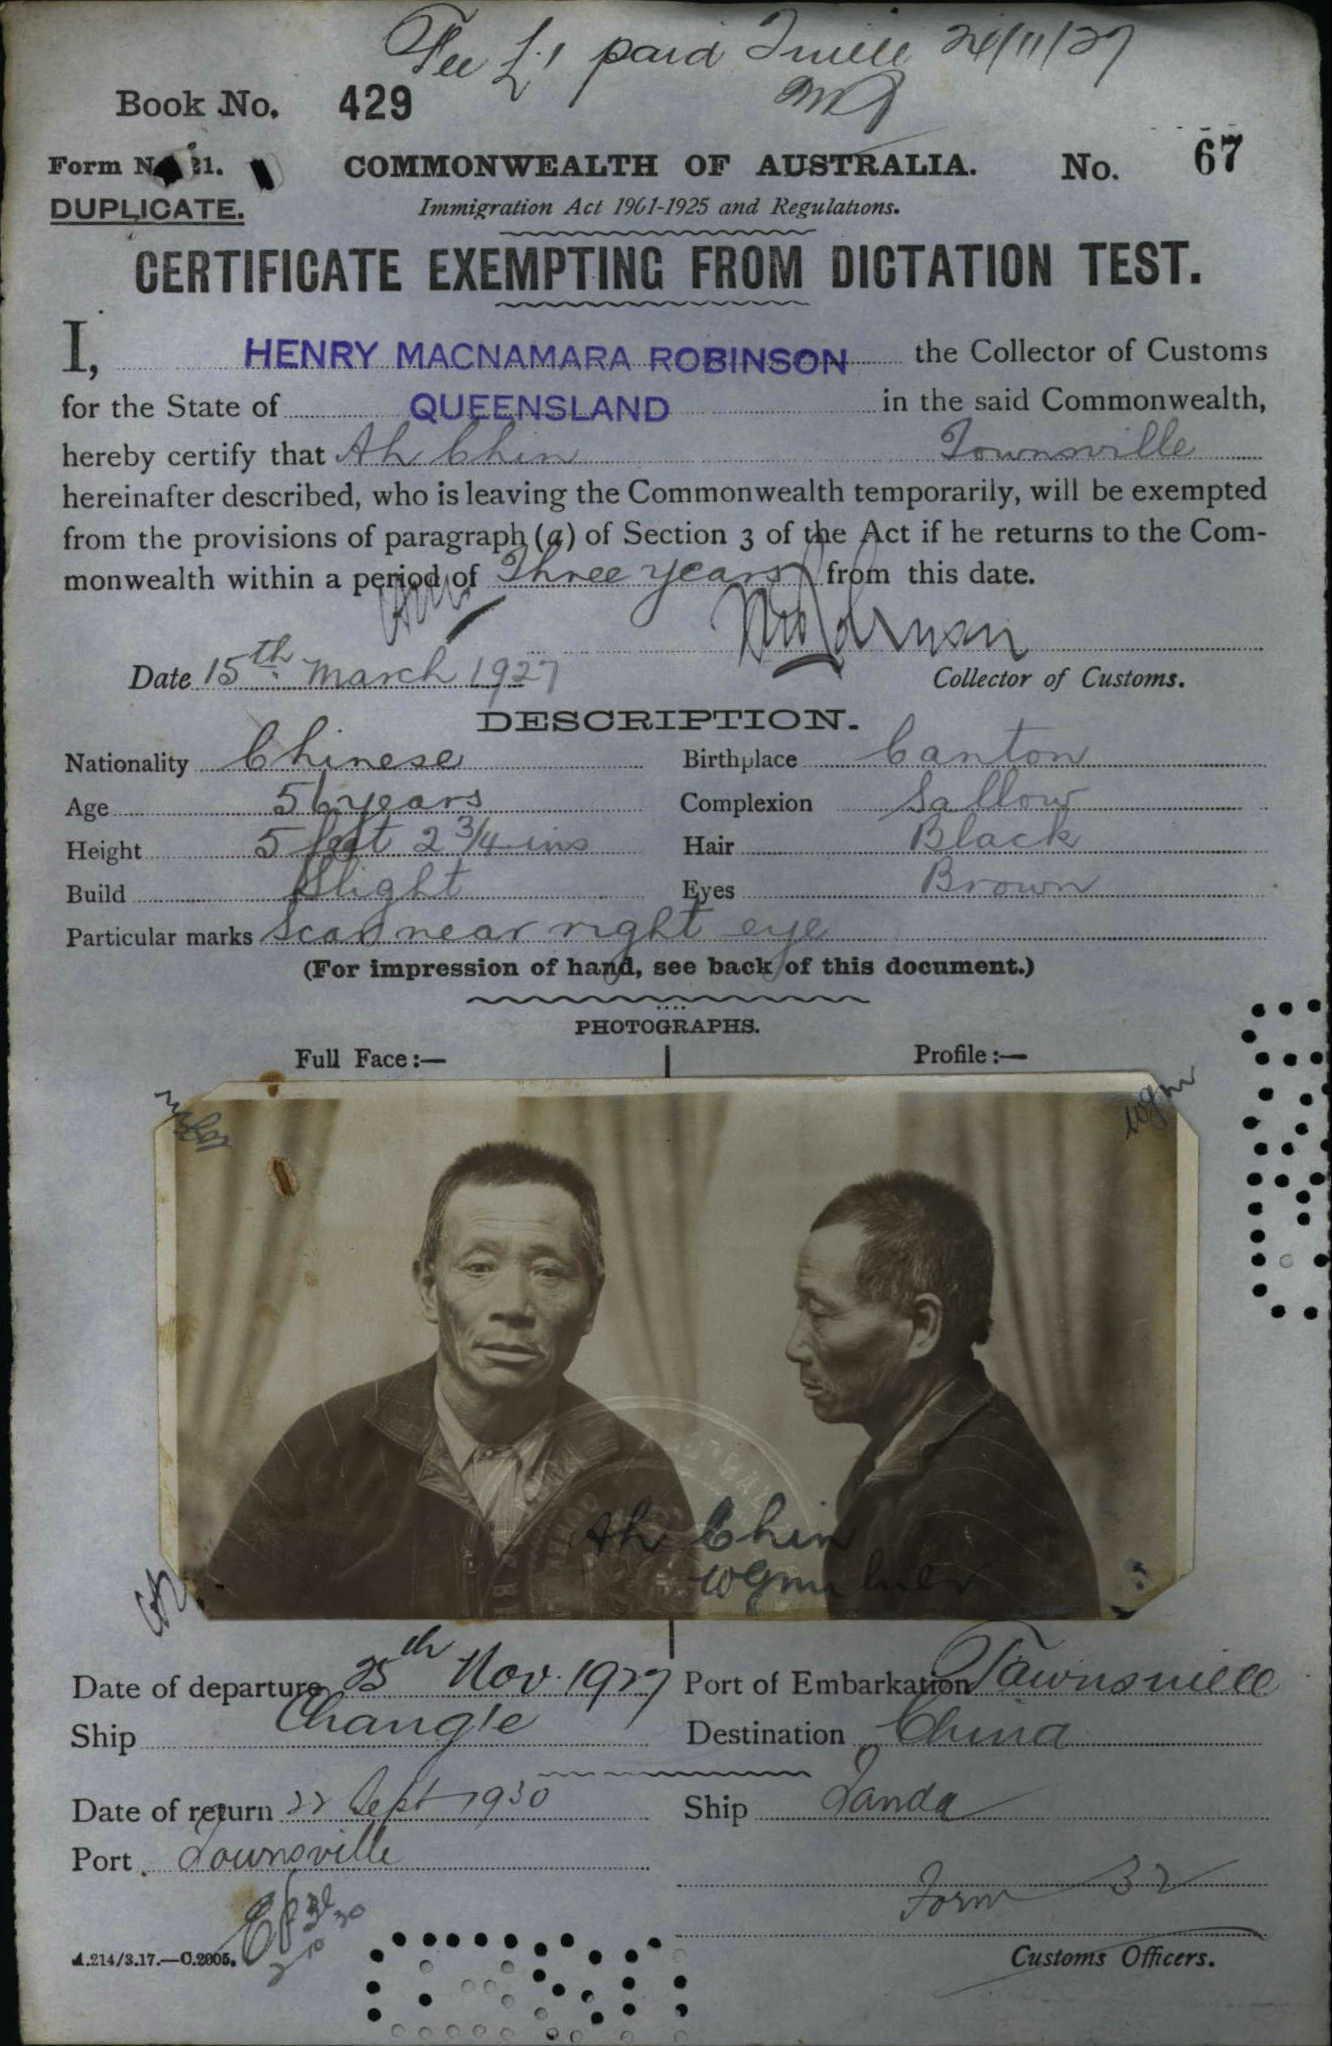 Fee £1 paid T'ville 24/11/27
Book No. 429
Form No. 21. COMMONWEALTH OF AUSTRALIA. No. 67
DUPLICATE. Immigration Act 1901-1925 and Regulations.
CERTIFICATE EXEMPTING FROM DICTATION TEST.
I, HENRY MACNAMARA ROBINSON the Collector of Customs
for the State of QUEENSLAND in the said Commonwealth,
hereby certify that Ah Chin Townsville
hereinafter described, who is leaving the Commonwealth temporarily, will be exempted
from the provisions of paragraph (a) of Section 3 of the Act if he returns to the Com-
monwealth within a period of Three years from this date.
Date 15th March 1927 Collector of Customs.
DESCRIPTION.
Nationality Chinese Birthplace Canton
Age 56 years Complexion Sallow
Height 5 feet 2 3/4 ins Hair Black
Build Slight Eyes Brown
Particular marks Scar near right eye
(For impression of hand, see back of this document.)
PHOTOGRAPHS.
Full Face:— Profile:—
Ah Chin
Date of departure 25th Nov. 1927 Port of Embarkation Townsville
Ship Changte Destination China
Date of return 22 Sept 1930 Ship Tanda
Port Townsville
Form 32
A.214/3.17.—C.2005. Customs Officers.